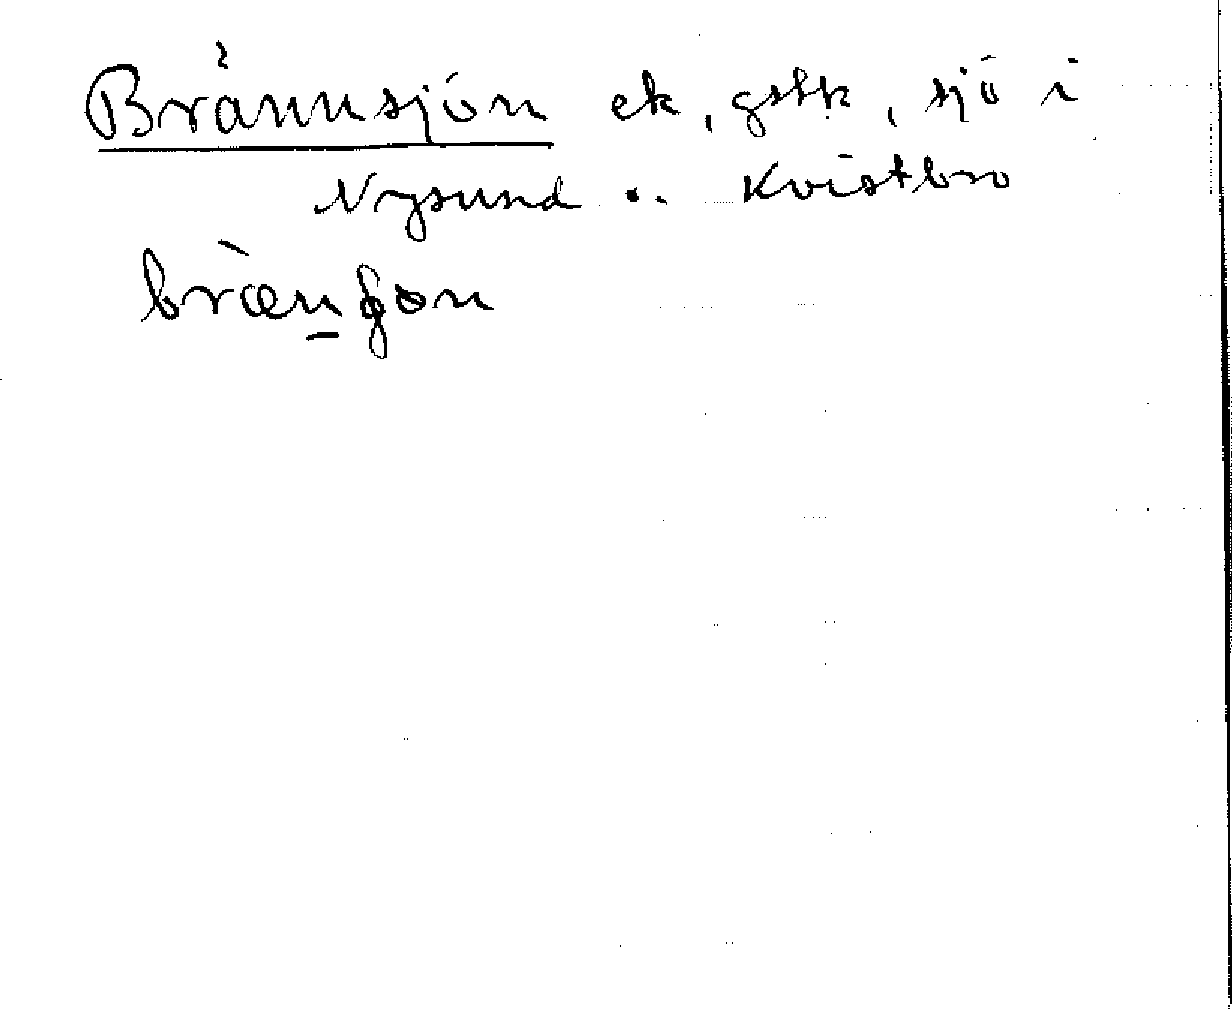 Brännsjön ek, gstk, sjö i
Nysund o. Kvistbro